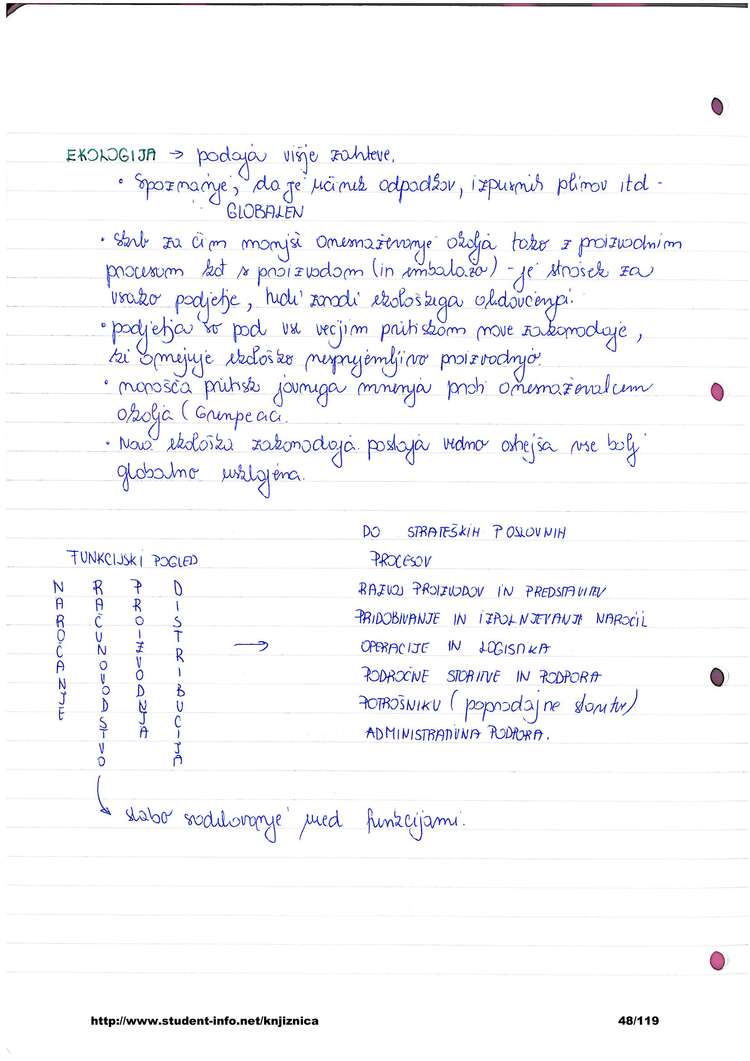 EKOLOGIJA → podaja višje zahteve.
• Spoznanje, da je učinek odpadkov, izpušnih plinov itd -
GLOBALEN
• Skrb za čim manjši onesnaževanje okolja tako z proizvodnim
procesom kot s proizvodom (in embalažo) - je strošek za
vsako podjetje, tudi zaradi ekološkega
• podjetja so pod vse večjim pritiskom nove zakonodaje,
ki omejuje ekološko nesprejemljivo proizvodnjo.
• narašča pritisk javnega mnenja proti onesnaževalcem
okolja (Greenpeace.
• Nova ekološka zakonodaja postaja vedno ostrejša vse bolj
globalno usklajena.
FUNKCIJSKI POGLED
NAROČANJE
RAČUNOVODSTVO
PROIZVODNJA
DISTRIBUCIJA
→
DO STRATEŠKIH POSLOVNIH
PROCESOV
RAZVOJ PROIZVODOV IN PREDSTAVITEV
PRIDOBIVANJE IN IZPOLNJEVANJE NAROČIL
OPERACIJE IN LOGISTIKA
PODROČNE STORITVE IN PODPORA
POTROŠNIKU (poprodajne storitve)
ADMINISTRATIVNA PODPORA.
slabo sodelovanje med funkcijami.
http://www.student-info.net/knjiznica
48/119